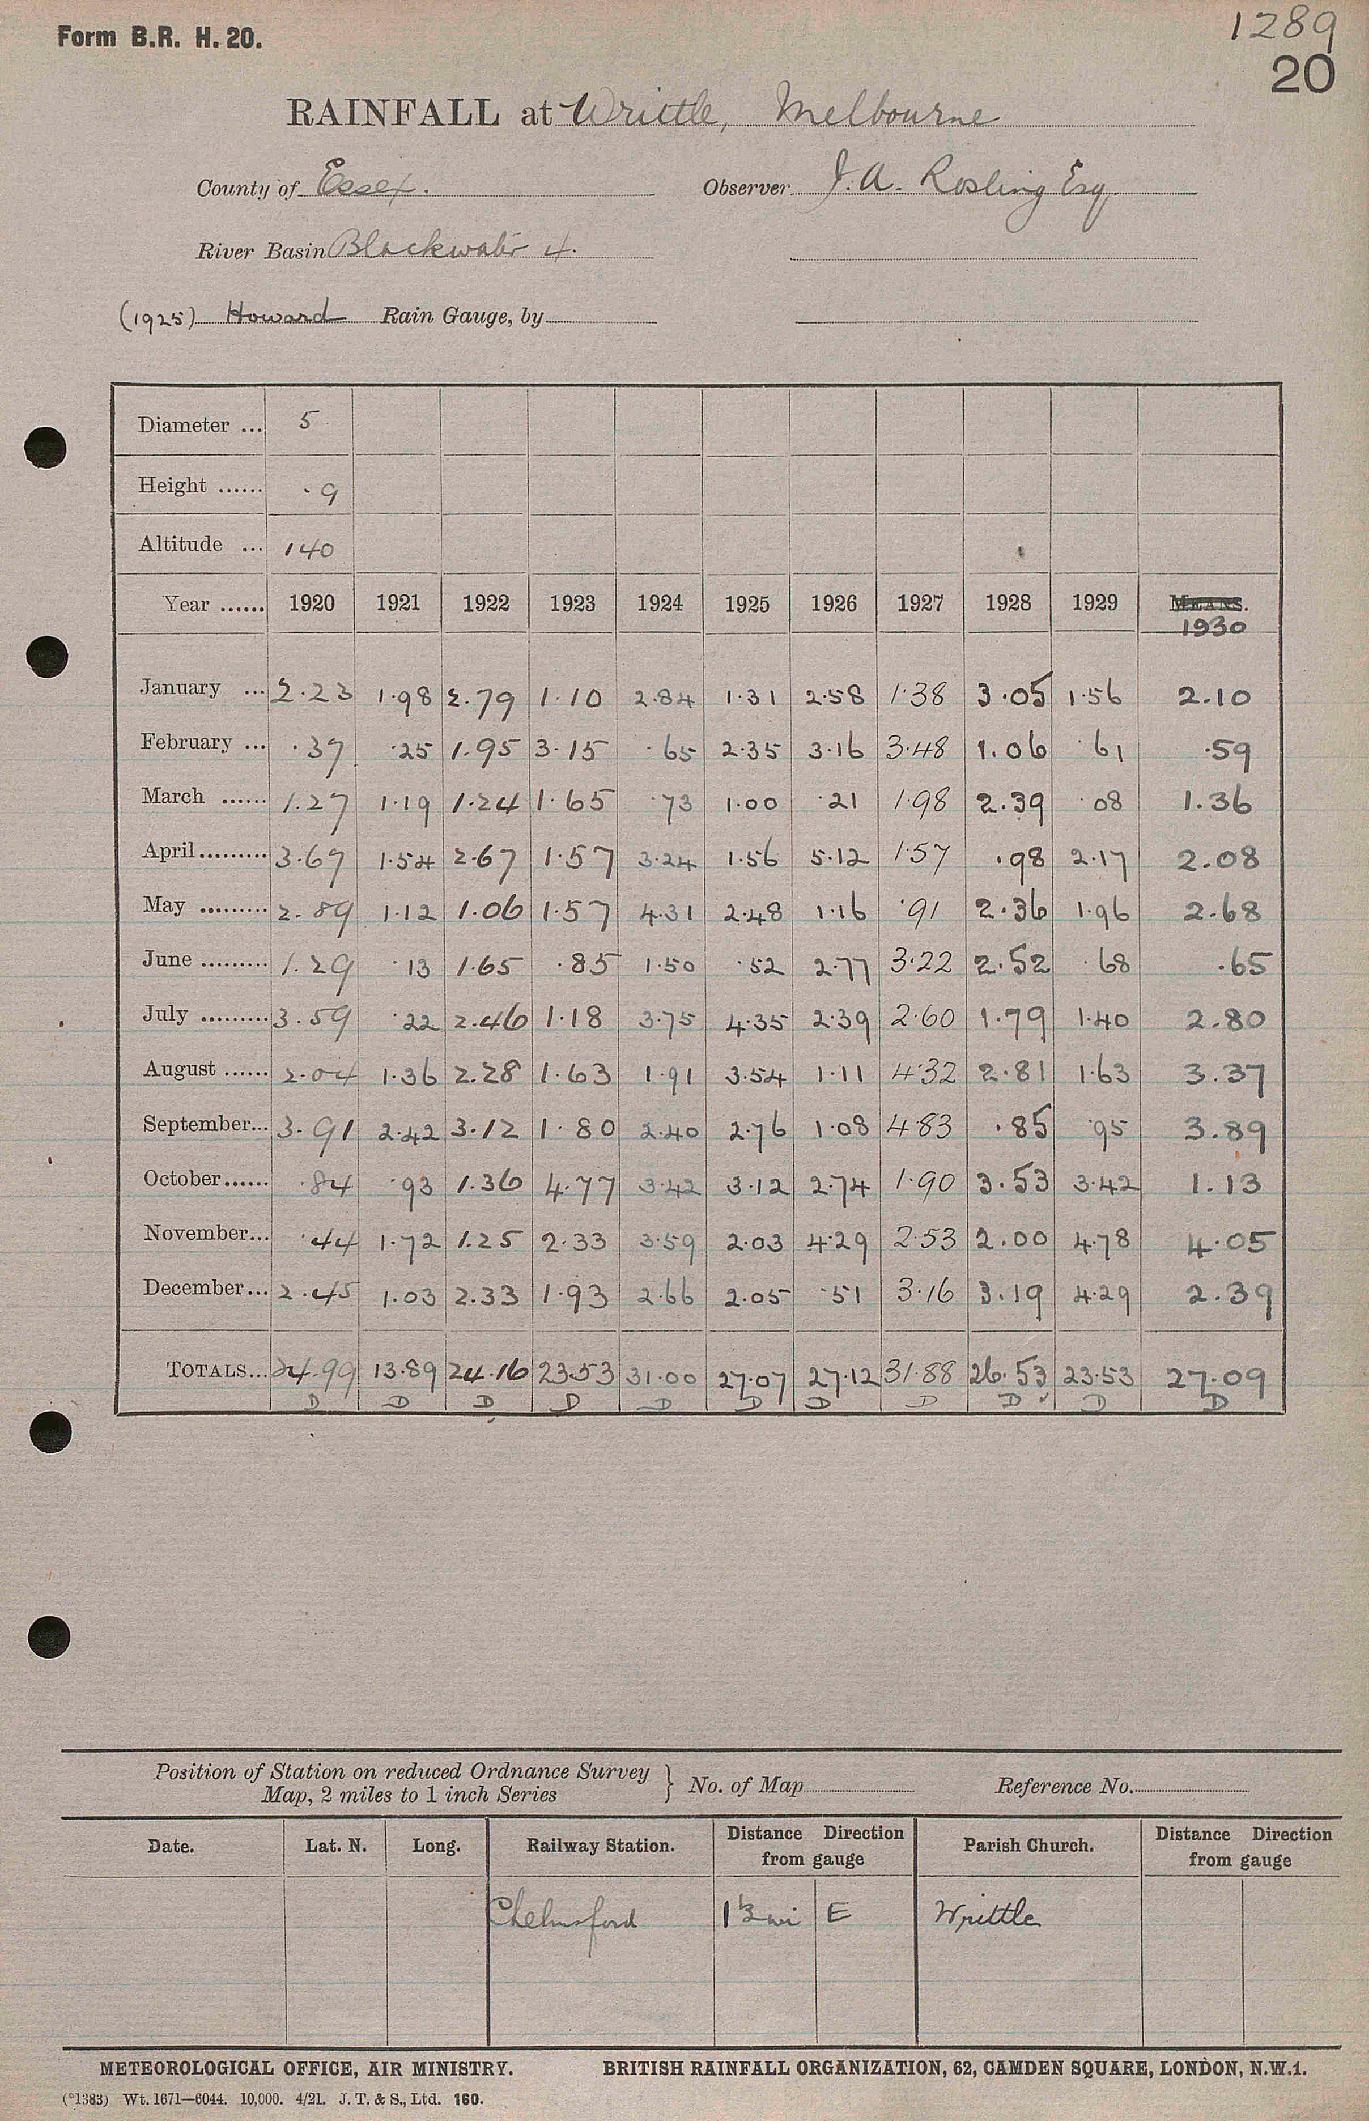 Form B.R. H. 20.
1289
20
RAINFALL at Writtle, Melbourne
County of Essex. Observer J. A. Rosling Esq
River Basin Blackwater 4.
(1925) Howard Rain Gauge, by
Diameter ... 5
Height ...... .9
Altitude ... 140
Year ...... 1920 1921 1922 1923 1924 1925 1926 1927 1928 1929 MEANS.
1930
January ... 2.23 1.98 2.79 1.10 2.84 1.31 2.58 1.38 3.05 1.56 2.10
February ... .37 .25 1.95 3.15 .65 2.35 3.16 3.48 1.06 .61 .59
March ...... 1.27 1.19 1.24 1.65 .73 1.00 .21 1.98 2.39 .08 1.36
April ......... 3.67 1.54 2.67 1.57 3.24 1.56 5.12 1.57 .98 2.17 2.08
May ......... 2.89 1.12 1.06 1.57 4.31 2.48 1.16 .91 2.36 1.96 2.68
June ......... 1.29 .13 1.65 .85 1.50 .52 2.77 3.22 2.52 .68 .65
July ......... 3.59 .22 2.46 1.18 3.75 4.35 2.39 2.60 1.79 1.40 2.80
August ...... 2.04 1.36 2.28 1.63 1.91 3.54 1.11 4.32 2.81 1.63 3.37
September... 3.91 2.42 3.12 1.80 2.40 2.76 1.08 4.83 .85 .95 3.89
October...... .84 .93 1.36 4.77 3.42 3.12 2.74 1.90 3.53 3.42 1.13
November... .44 1.72 1.25 2.33 3.59 2.03 4.29 2.53 2.00 4.78 4.05
December... 2.45 1.03 2.33 1.93 2.66 2.05 .51 3.16 3.19 4.29 2.39
TOTALS... 24.99 13.89 24.16 23.53 31.00 27.07 27.12 31.88 26.53 23.53 27.09
D D D D D D D D D D D
Position of Station on reduced Ordnance Survey
Map, 2 miles to 1 inch Series } No. of Map Reference No.
Date. Lat. N. Long. Railway Station. Distance Direction from gauge Parish Church. Distance Direction from gauge
Chelmsford 1 mi E Writtle
METEOROLOGICAL OFFICE, AIR MINISTRY. BRITISH RAINFALL ORGANIZATION, 62, CAMDEN SQUARE, LONDON, N.W.1.
(*1383) Wt. 1671—6044. 10,000. 4/21. J. T. & S., Ltd. 160.